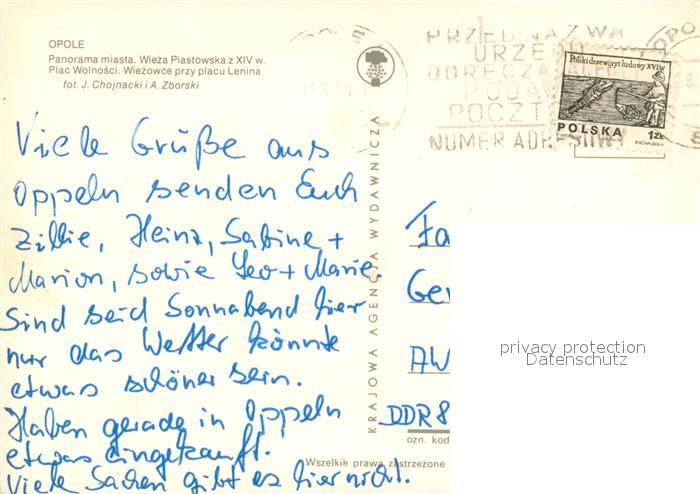 OPOLE
Panorama miasta. Wieża Piastowska z XIV w.
Plac Wolności. Wieżowce przy placu Lenina
fot. J. Chojnacki i A. Zborski
Viele Grüße aus
Oppeln senden Euch
Zillie, Heinz, Sabine +
Marion, sowie Leo + Marie.
Sind seid Sonnabend hier
nur das Wetter könnte
etwas schöner sein.
Haben gerade in Oppeln
etwas eingekauft.
Viele Sachen gibt es hier nicht.
KRAJOWA AGENCJA WYDAWNICZA
PRZED NAZWĄ
URZĘDU
ODBIORCZEGO
PODAJ
POCZTOWY
NUMER ADRESOWY
Polski drzeworyt ludowy XVI w.
POLSKA 1 ZŁ
Fa
Ge
AW
DDR 8
ozn. kod
Wszelkie prawa zastrzeżone
privacy protection
Datenschutz